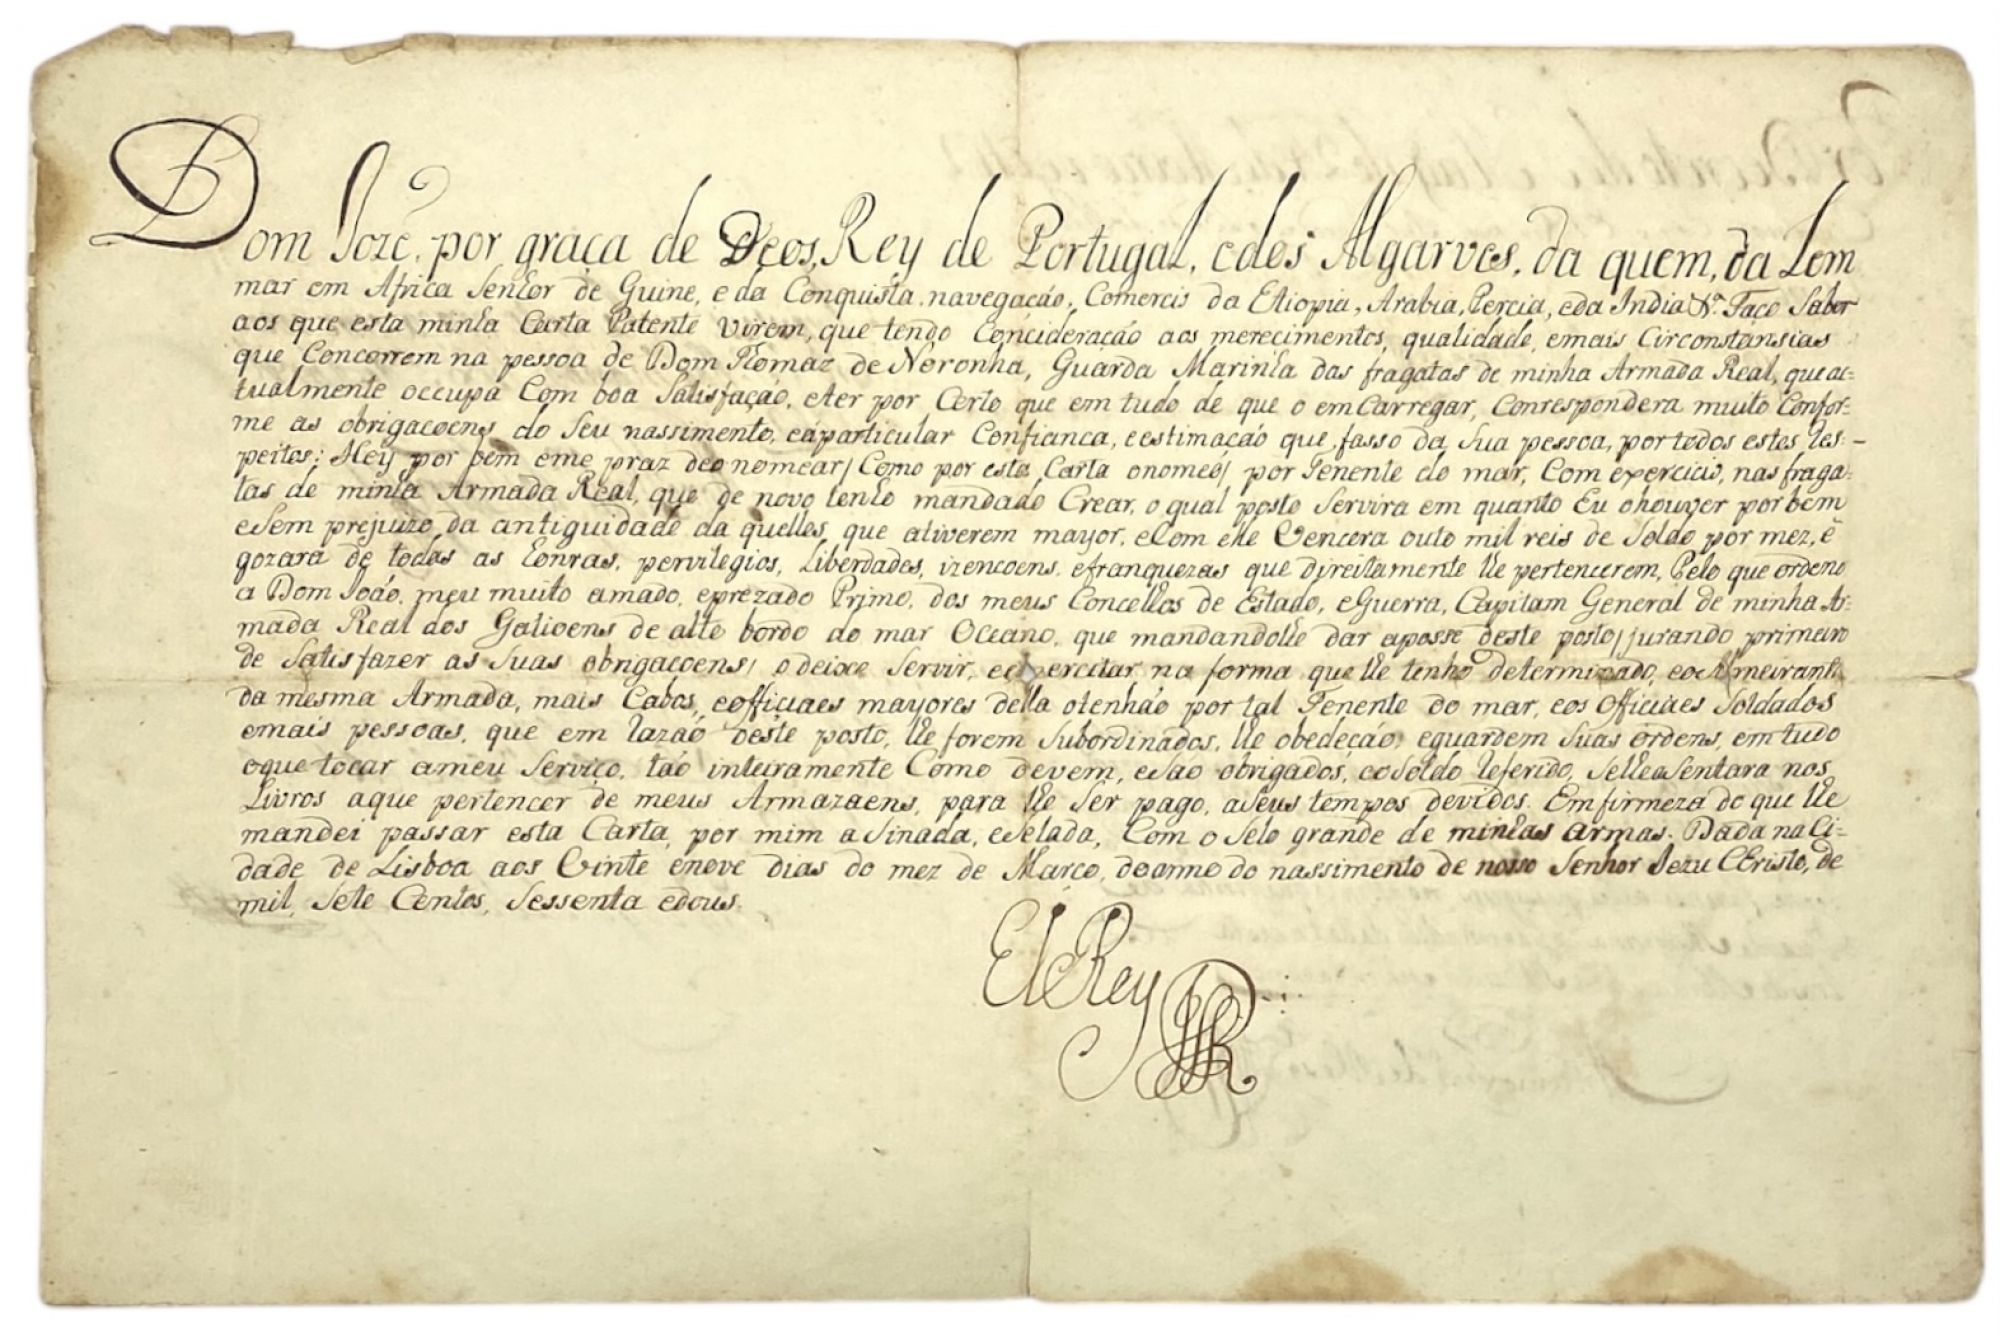 Dom Jozé, por graça de Deos, Rey de Portugal, edos Algarves, da quem, da Lem
mar em Africa Senhor de Guine, e da Conquista, navegação, Comercio da Etiopia, Arabia, Percia, eda India &ª. Faço Saber
aos que esta minha Carta Patente virem, que tendo Concideração aos merecimentos, qualidade, emais Circonstansias
que Concorrem na pessoa de Dom Thomaz de Noronha, Guarda Marinha das fragatas de minha Armada Real, que ac=
tualmente occupa Com boa Satisfação, eter por Certo que em tudo de que o emCarregar, Conrespondera muito Confor=
me as obrigacoens do Seu nassimento, eaparticular Confianca, eestimação que fasso da Sua pessoa, por todos estes Res=
peitos: Hey por bem eme praz deo nomear / Como por esta Carta onomeo / por Tenente do mar, Com exercicio, nas fraga=
tas de minha Armada Real, que de novo tenho mandado Crear, o qual posto Servira em quanto Eu ohouver por bem
eSem prejuizo da antiguidade da quelles, que ativerem mayor, eCom elle Vencera outo mil reis de Soldo por mez, e
gozara de todas as honras, pervilegios, Liberdades, izencoens, efranquezas que direitamente lhe pertencerem, Pelo que ordeno
a Dom João, meu muito amado, eprezado Primo, dos meus Concelhos de Estado, eGuerra, Capitam General de minha Ar=
mada Real dos Galioens de alto bordo do mar Oceano, que mandandolhe dar aposse deste posto / jurando primeiro
de Satisfazer as Suas obrigaçoens / odeixe Servir, eexercitar na forma que lhe tenho determinado, eoAlmeirante
da mesma Armada, mais Cabos, eofficiaes mayores della otenhão por tal Tenente do mar, eos Officiaes Soldados
emais pessoas, que em Razão deste posto, lhe forem Subordinados, lhe obedeção, eguardem Suas ordens, em tudo
oque tocar ameu Serviço, tão inteiramente Como devem, eSão obrigados, eoSoldo Referido, SelheaSentara nos
Livros aque pertencer de meus Armazaens, para lhe Ser pago, aSeus tempos devidos. Em firmeza do que lhe
mandei passar esta Carta, por mim aSinada, eSelada, Com o Selo grande de minhas armas. Dada na Ci=
dade de Lisboa aos Vinte enove dias do mez de Março, doanno do nassimento de noso Senhor Jezu Christo, de
mil, Sete Centos, Sessenta edous.
El Rey